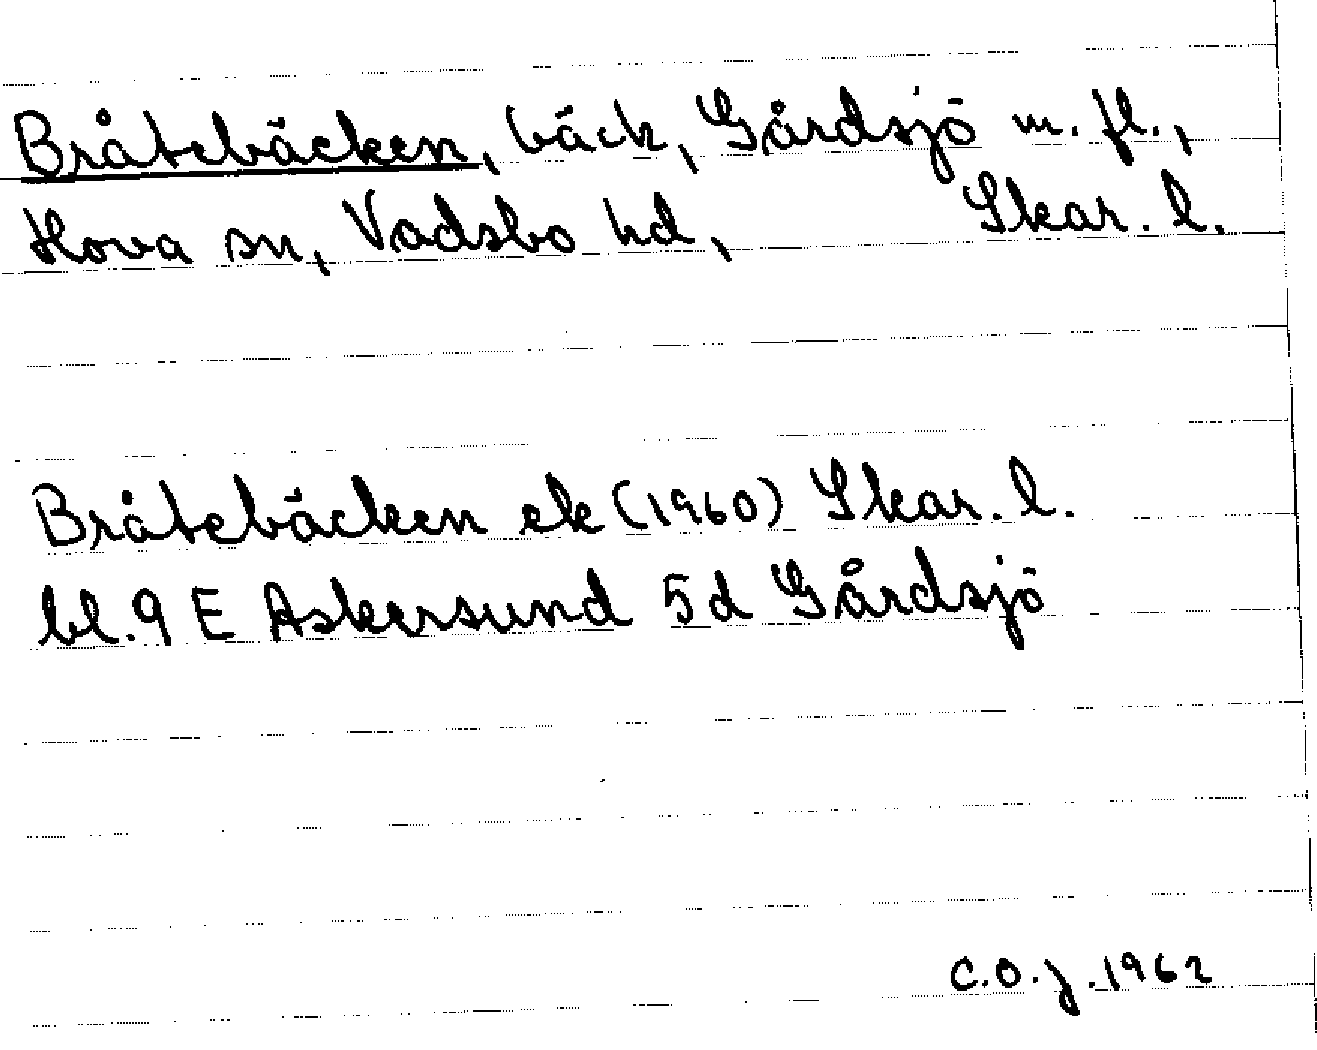 Bråtebäcken, bäck, Gårdsjö m. fl.,
Hova sn, Vadsbo hd, Skar. l.
Bråtebäcken ek (1960) Skar. l.
bl. 9 E Askersund 5d Gårdsjö
C.O.J. 1962